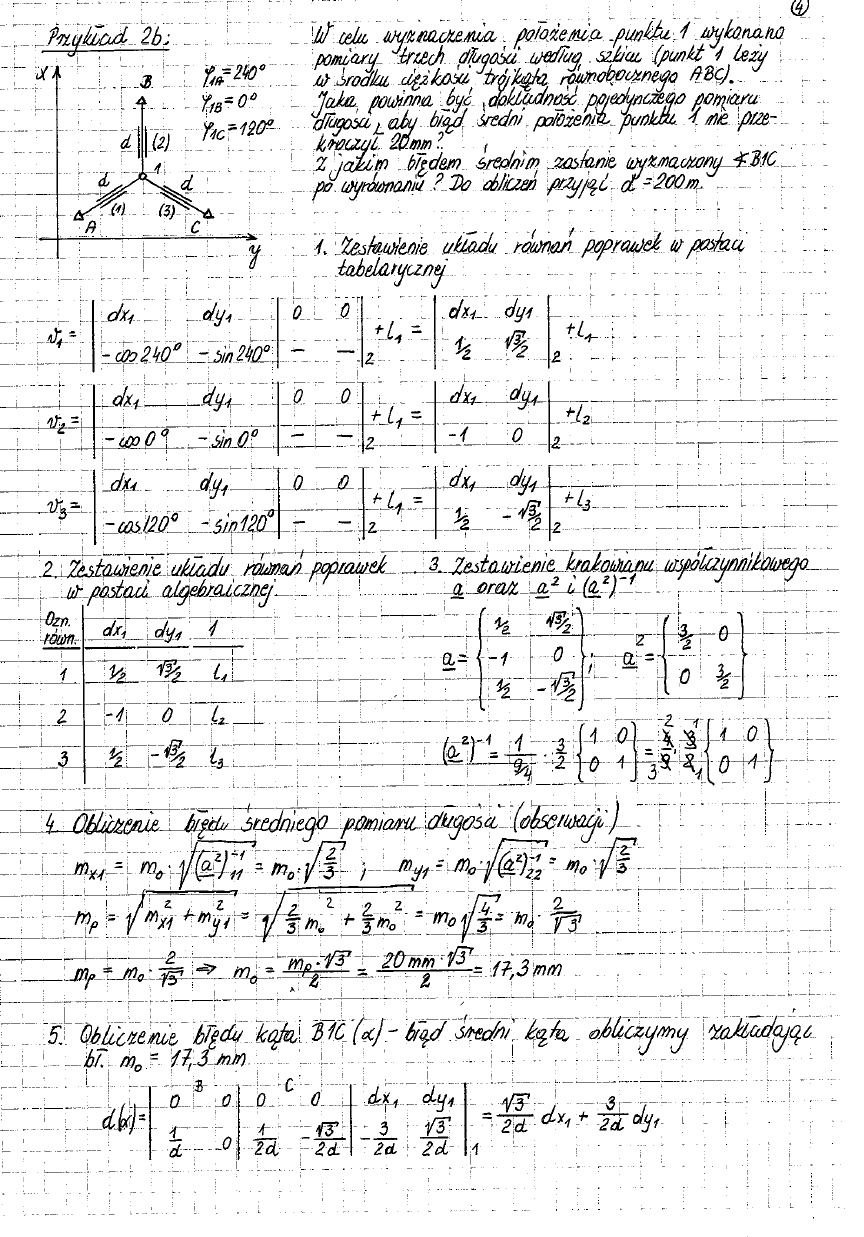 4
Przykład 2b:
x
B
φ1A = 240°
φ1B = 0°
φ1C = 120°
d (2)
1
d d
(1) (3)
A C
y
W celu wyznaczenia położenia punktu 1 wykonano
pomiary trzech długości według szkicu (punkt 1 leży
w środku ciężkości trójkąta równobocznego ABC).
Jaka powinna być dokładność pojedynczego pomiaru
długości, aby błąd średni położenia punktu 1 nie prze-
kroczył 20mm?
Z jakim błędem średnim zostanie wyznaczony ∢B1C
po wyrównaniu? Do obliczeń przyjąć d = 200m.
1. Zestawienie układu równań poprawek w postaci
tabelarycznej
v1 = | dx1 dy1 | 0 0 | + l1 = | dx1 dy1 | + l1
-cos240° -sin240° | — — | 2 1/2 √3/2 | 2
v2 = | dx1 dy1 | 0 0 | + l1 = | dx1 dy1 | + l2
-cos0° -sin0° | — — | 2 -1 0 | 2
v3 = | dx1 dy1 | 0 0 | + l1 = | dx1 dy1 | + l3
-cos120° -sin120° | — — | 2 1/2 -√3/2 | 2
2. Zestawienie układu równań poprawek
w postaci algebraicznej
Ozn. równ. dx1 dy1 1
1 1/2 √3/2 l1
2 -1 0 l2
3 1/2 -√3/2 l3
3. Zestawienie krakowianu współczynnikowego
a oraz a² i (a²)⁻¹
a = { 1/2 √3/2 ; -1 0 ; 1/2 -√3/2 } ; a² = { 3/2 0 ; 0 3/2 }
(a²)⁻¹ = 1/(9/4) · 3/2 { 1 0 ; 0 1 } = 4/9 · 3/2 { 1 0 ; 0 1 }
4. Obliczenie błędu średniego pomiaru długości (obserwacji)
mx1 = mo · √(a²)⁻¹11 = mo · √2/3 ; my1 = mo · √(a²)⁻¹22 = mo · √2/3
mp = √mx1² + my1² = √2/3 mo² + 2/3 mo² = mo √4/3 = mo · 2/√3
mp = mo · 2/√3 ⇒ mo = mp · √3/2 = 20 mm · √3/2 = 17,3 mm
5. Obliczenie błędu kąta B1C (α) – błąd średni kąta obliczymy zakładając
bł. mo = 17,3 mm
B C
d(α) = | 0 0 | 0 0 | dx1 dy1 | = √3/2d dx1 + 3/2d dy1
1/d 0 | 1/2d -√3/2d | -3/2d √3/2d | 1